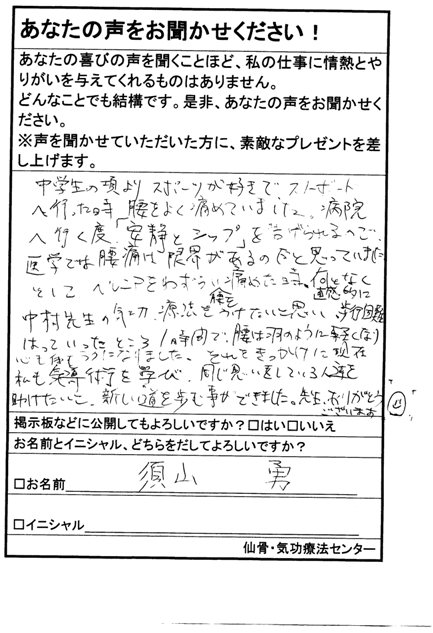 あなたの声をお聞かせください！
あなたの喜びの声を聞くことほど、私の仕事に情熱とや
りがいを与えてくれるものはありません。
どんなことでも結構です。是非、あなたの声をお聞かせく
ださい。
※声を聞かせていただいた方に、素敵なプレゼントを差
し上げます。
中学生の頃よりスポーツが好きで、スノーボート
へ行った時、腰をよく痛めていました。病院
へ行く度「安静とシップ」を告げられるので、
医学では腰痛は限界があるのだと思っていました
そして ヘルニアをわずらい腰を痛めた時、何となく直感的に
中村先生の気功療法をうけたいと思い、歩行困難
はっていったところ 1時間で、腰は羽のように軽くなり
心も なりました。それをきっかけに現在
私も気導術を学び、同じ思いをしている人達を
助けたいと、新しい道を歩む事ができました。先生、ありがとう
ございます
掲示板などに公開してもよろしいですか？□はい□いいえ
お名前とイニシャル、どちらをだしてよろしいですか？
□お名前 須山 勇
□イニシャル
仙骨・気功療法センター